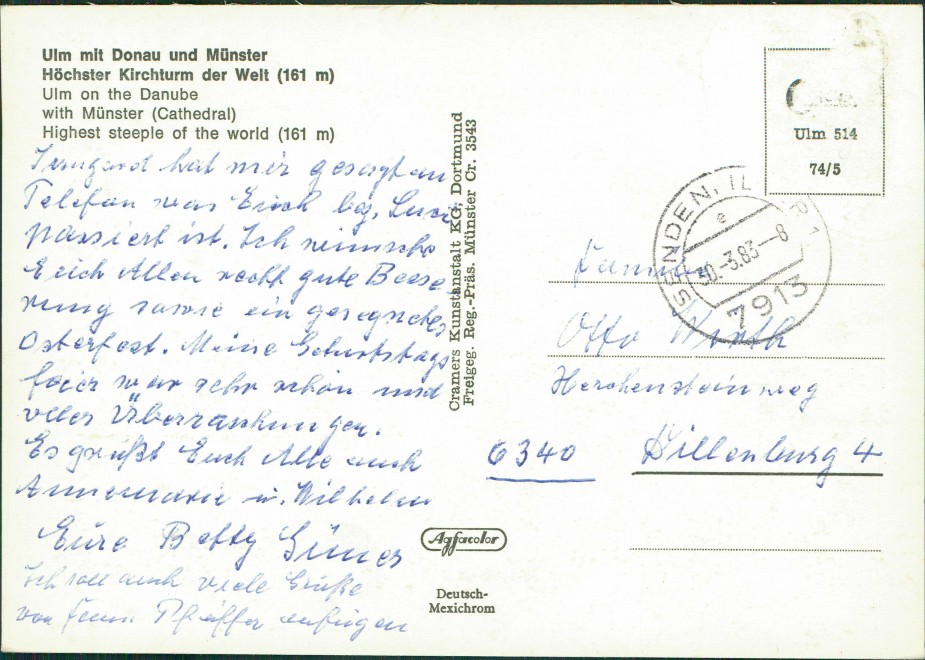 Ulm mit Donau und Münster
Höchster Kirchturm der Welt (161 m)
Ulm on the Danube
with Münster (Cathedral)
Highest steeple of the world (161 m)
Irmgard hat mir gesagt am
Telefon was Erich bzg.
passiert ist. Ich wünsche
Euch Allen recht gute Besse
rung sowie ein gesegnetes
Osterfest. Meine Geburtstags
feier war sehr schön und
voller Überraschungen.
Es grüßt Euch Alle auch
Annemarie u. Wilhelm
Eure Betty
Ich soll auch viele Grüße
von Pfeiffer anfügen
Cramers Kunstanstalt KG, Dortmund
Freigeg. Reg.-Präs. Münster Cr. 3543
Agfacolor
Deutsch-
Mexichrom
Ulm 514
74/5
SENDEN, ILLER 1
e
30.-3.83-8
7913
Familie
Otto Wirth
Herchensteinweg
6340 Dillenburg 4